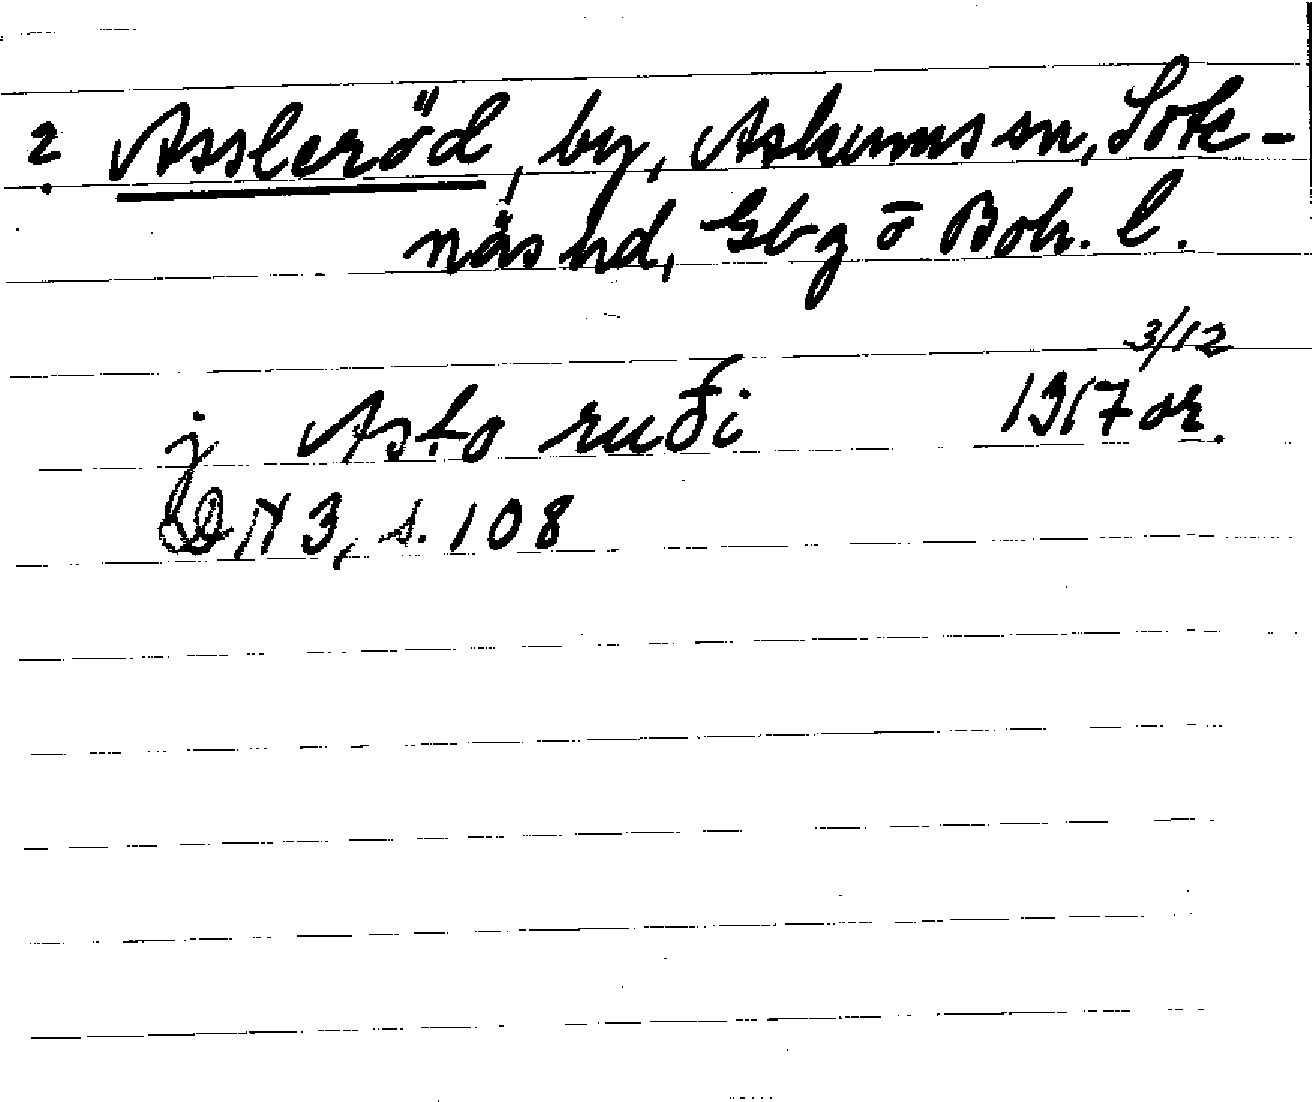 ? Assleröd, by, Askums sn, Sote-
näs hd, Gbg o Boh. l.
3/12
j Asto ruði 1317 or.
DN 3, s. 108